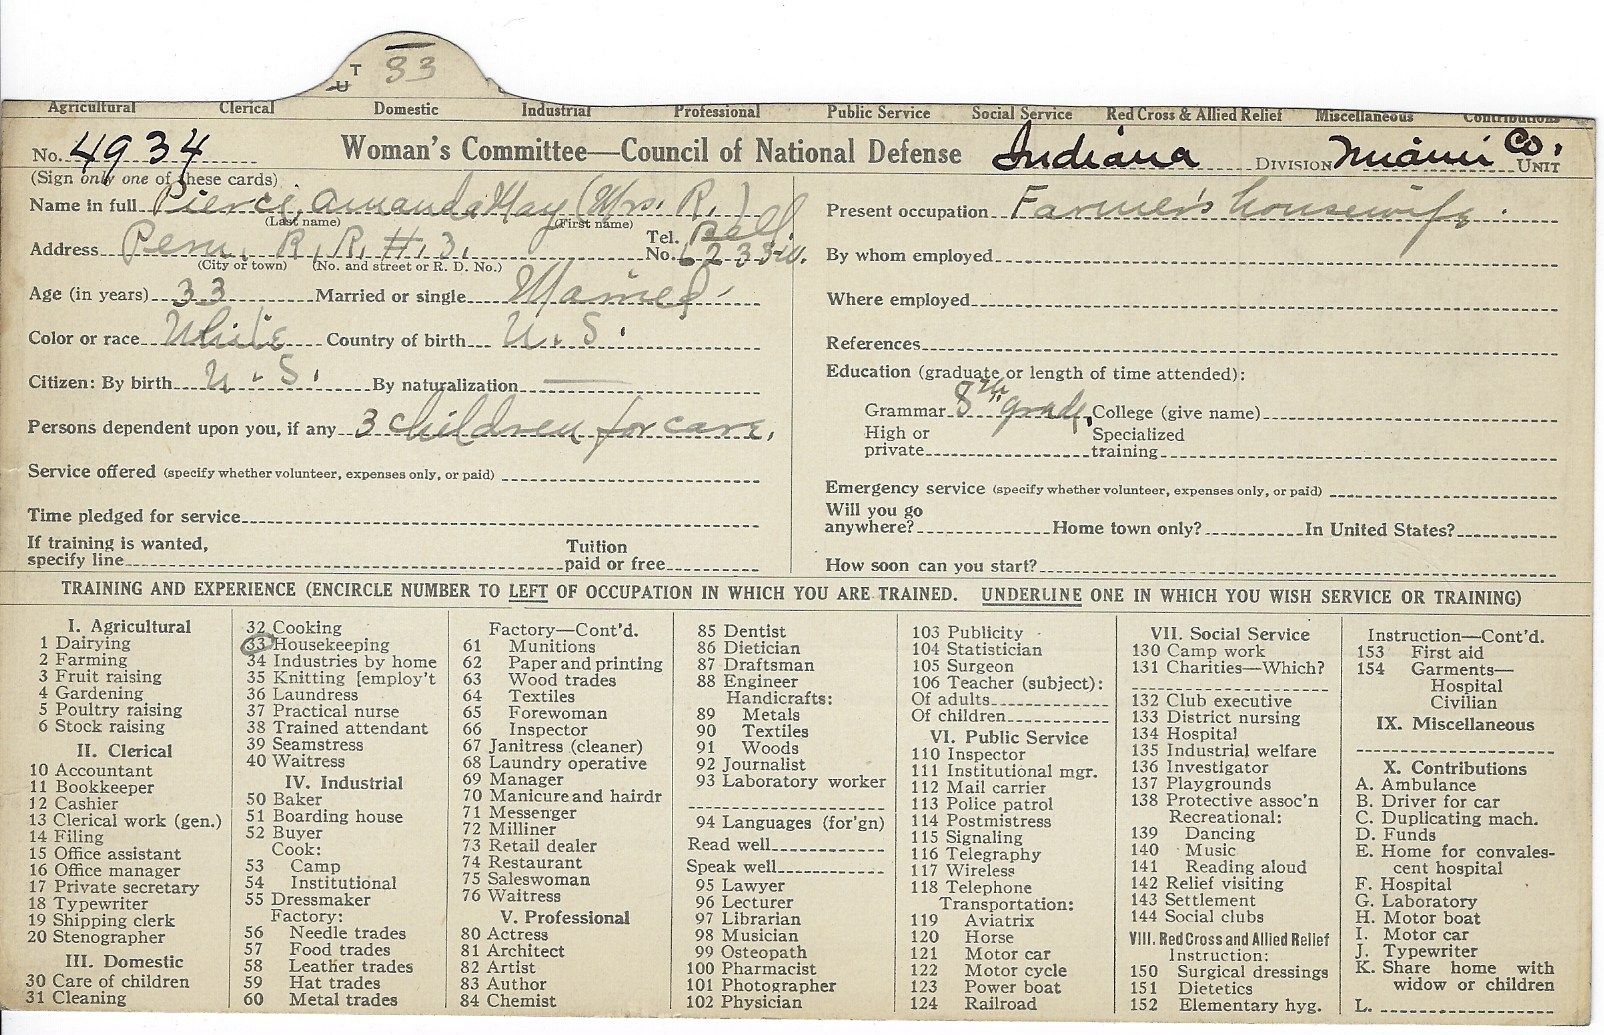 T 33
U
Agricultural Clerical Domestic Industrial Professional Public Service Social Service Red Cross & Allied Relief Miscellaneous Contributions
No. 4934 Woman's Committee—Council of National Defense Indiana DIVISION Miami Co. UNIT
(Sign only one of these cards)
Name in full Pierce, Amanda May (Mrs. R.)
(Last name) (First name)
Address Peru, R.R. #.3. Tel. No. Bell
(City or town) (No. and street or R. D. No.)
Age (in years) 33 Married or single Married
Color or race White Country of birth U.S.
Citizen: By birth U.S. By naturalization —
Persons dependent upon you, if any 3 children for care.
Service offered (specify whether volunteer, expenses only, or paid)
Time pledged for service
If training is wanted, specify line Tuition paid or free
Present occupation Farmer's housewife.
By whom employed
Where employed
References
Education (graduate or length of time attended):
Grammar 8th grade, College (give name)
High or private Specialized training
Emergency service (specify whether volunteer, expenses only, or paid)
Will you go anywhere? Home town only? In United States?
How soon can you start?
TRAINING AND EXPERIENCE (ENCIRCLE NUMBER TO LEFT OF OCCUPATION IN WHICH YOU ARE TRAINED. UNDERLINE ONE IN WHICH YOU WISH SERVICE OR TRAINING)
I. Agricultural
1 Dairying
2 Farming
3 Fruit raising
4 Gardening
5 Poultry raising
6 Stock raising
II. Clerical
10 Accountant
11 Bookkeeper
12 Cashier
13 Clerical work (gen.)
14 Filing
15 Office assistant
16 Office manager
17 Private secretary
18 Typewriter
19 Shipping clerk
20 Stenographer
III. Domestic
30 Care of children
31 Cleaning
32 Cooking
33 Housekeeping
34 Industries by home
35 Knitting [employ't
36 Laundress
37 Practical nurse
38 Trained attendant
39 Seamstress
40 Waitress
IV. Industrial
50 Baker
51 Boarding house
52 Buyer
Cook:
53 Camp
54 Institutional
55 Dressmaker
Factory:
56 Needle trades
57 Food trades
58 Leather trades
59 Hat trades
60 Metal trades
Factory—Cont'd.
61 Munitions
62 Paper and printing
63 Wood trades
64 Textiles
65 Forewoman
66 Inspector
67 Janitress (cleaner)
68 Laundry operative
69 Manager
70 Manicure and hairdr
71 Messenger
72 Milliner
73 Retail dealer
74 Restaurant
75 Saleswoman
76 Waitress
V. Professional
80 Actress
81 Architect
82 Artist
83 Author
84 Chemist
85 Dentist
86 Dietician
87 Draftsman
88 Engineer
Handicrafts:
89 Metals
90 Textiles
91 Woods
92 Journalist
93 Laboratory worker
94 Languages (for'gn)
Read well
Speak well
95 Lawyer
96 Lecturer
97 Librarian
98 Musician
99 Osteopath
100 Pharmacist
101 Photographer
102 Physician
103 Publicity
104 Statistician
105 Surgeon
106 Teacher (subject):
Of adults
Of children
VI. Public Service
110 Inspector
111 Institutional mgr.
112 Mail carrier
113 Police patrol
114 Postmistress
115 Signaling
116 Telegraphy
117 Wireless
118 Telephone
Transportation:
119 Aviatrix
120 Horse
121 Motor car
122 Motor cycle
123 Power boat
124 Railroad
VII. Social Service
130 Camp work
131 Charities—Which?
132 Club executive
133 District nursing
134 Hospital
135 Industrial welfare
136 Investigator
137 Playgrounds
138 Protective assoc'n
Recreational:
139 Dancing
140 Music
141 Reading aloud
142 Relief visiting
143 Settlement
144 Social clubs
VIII. Red Cross and Allied Relief
Instruction:
150 Surgical dressings
151 Dietetics
152 Elementary hyg.
Instruction—Cont'd.
153 First aid
154 Garments—
Hospital
Civilian
IX. Miscellaneous
X. Contributions
A. Ambulance
B. Driver for car
C. Duplicating mach.
D. Funds
E. Home for convales-
cent hospital
F. Hospital
G. Laboratory
H. Motor boat
I. Motor car
J. Typewriter
K. Share home with
widow or children
L.